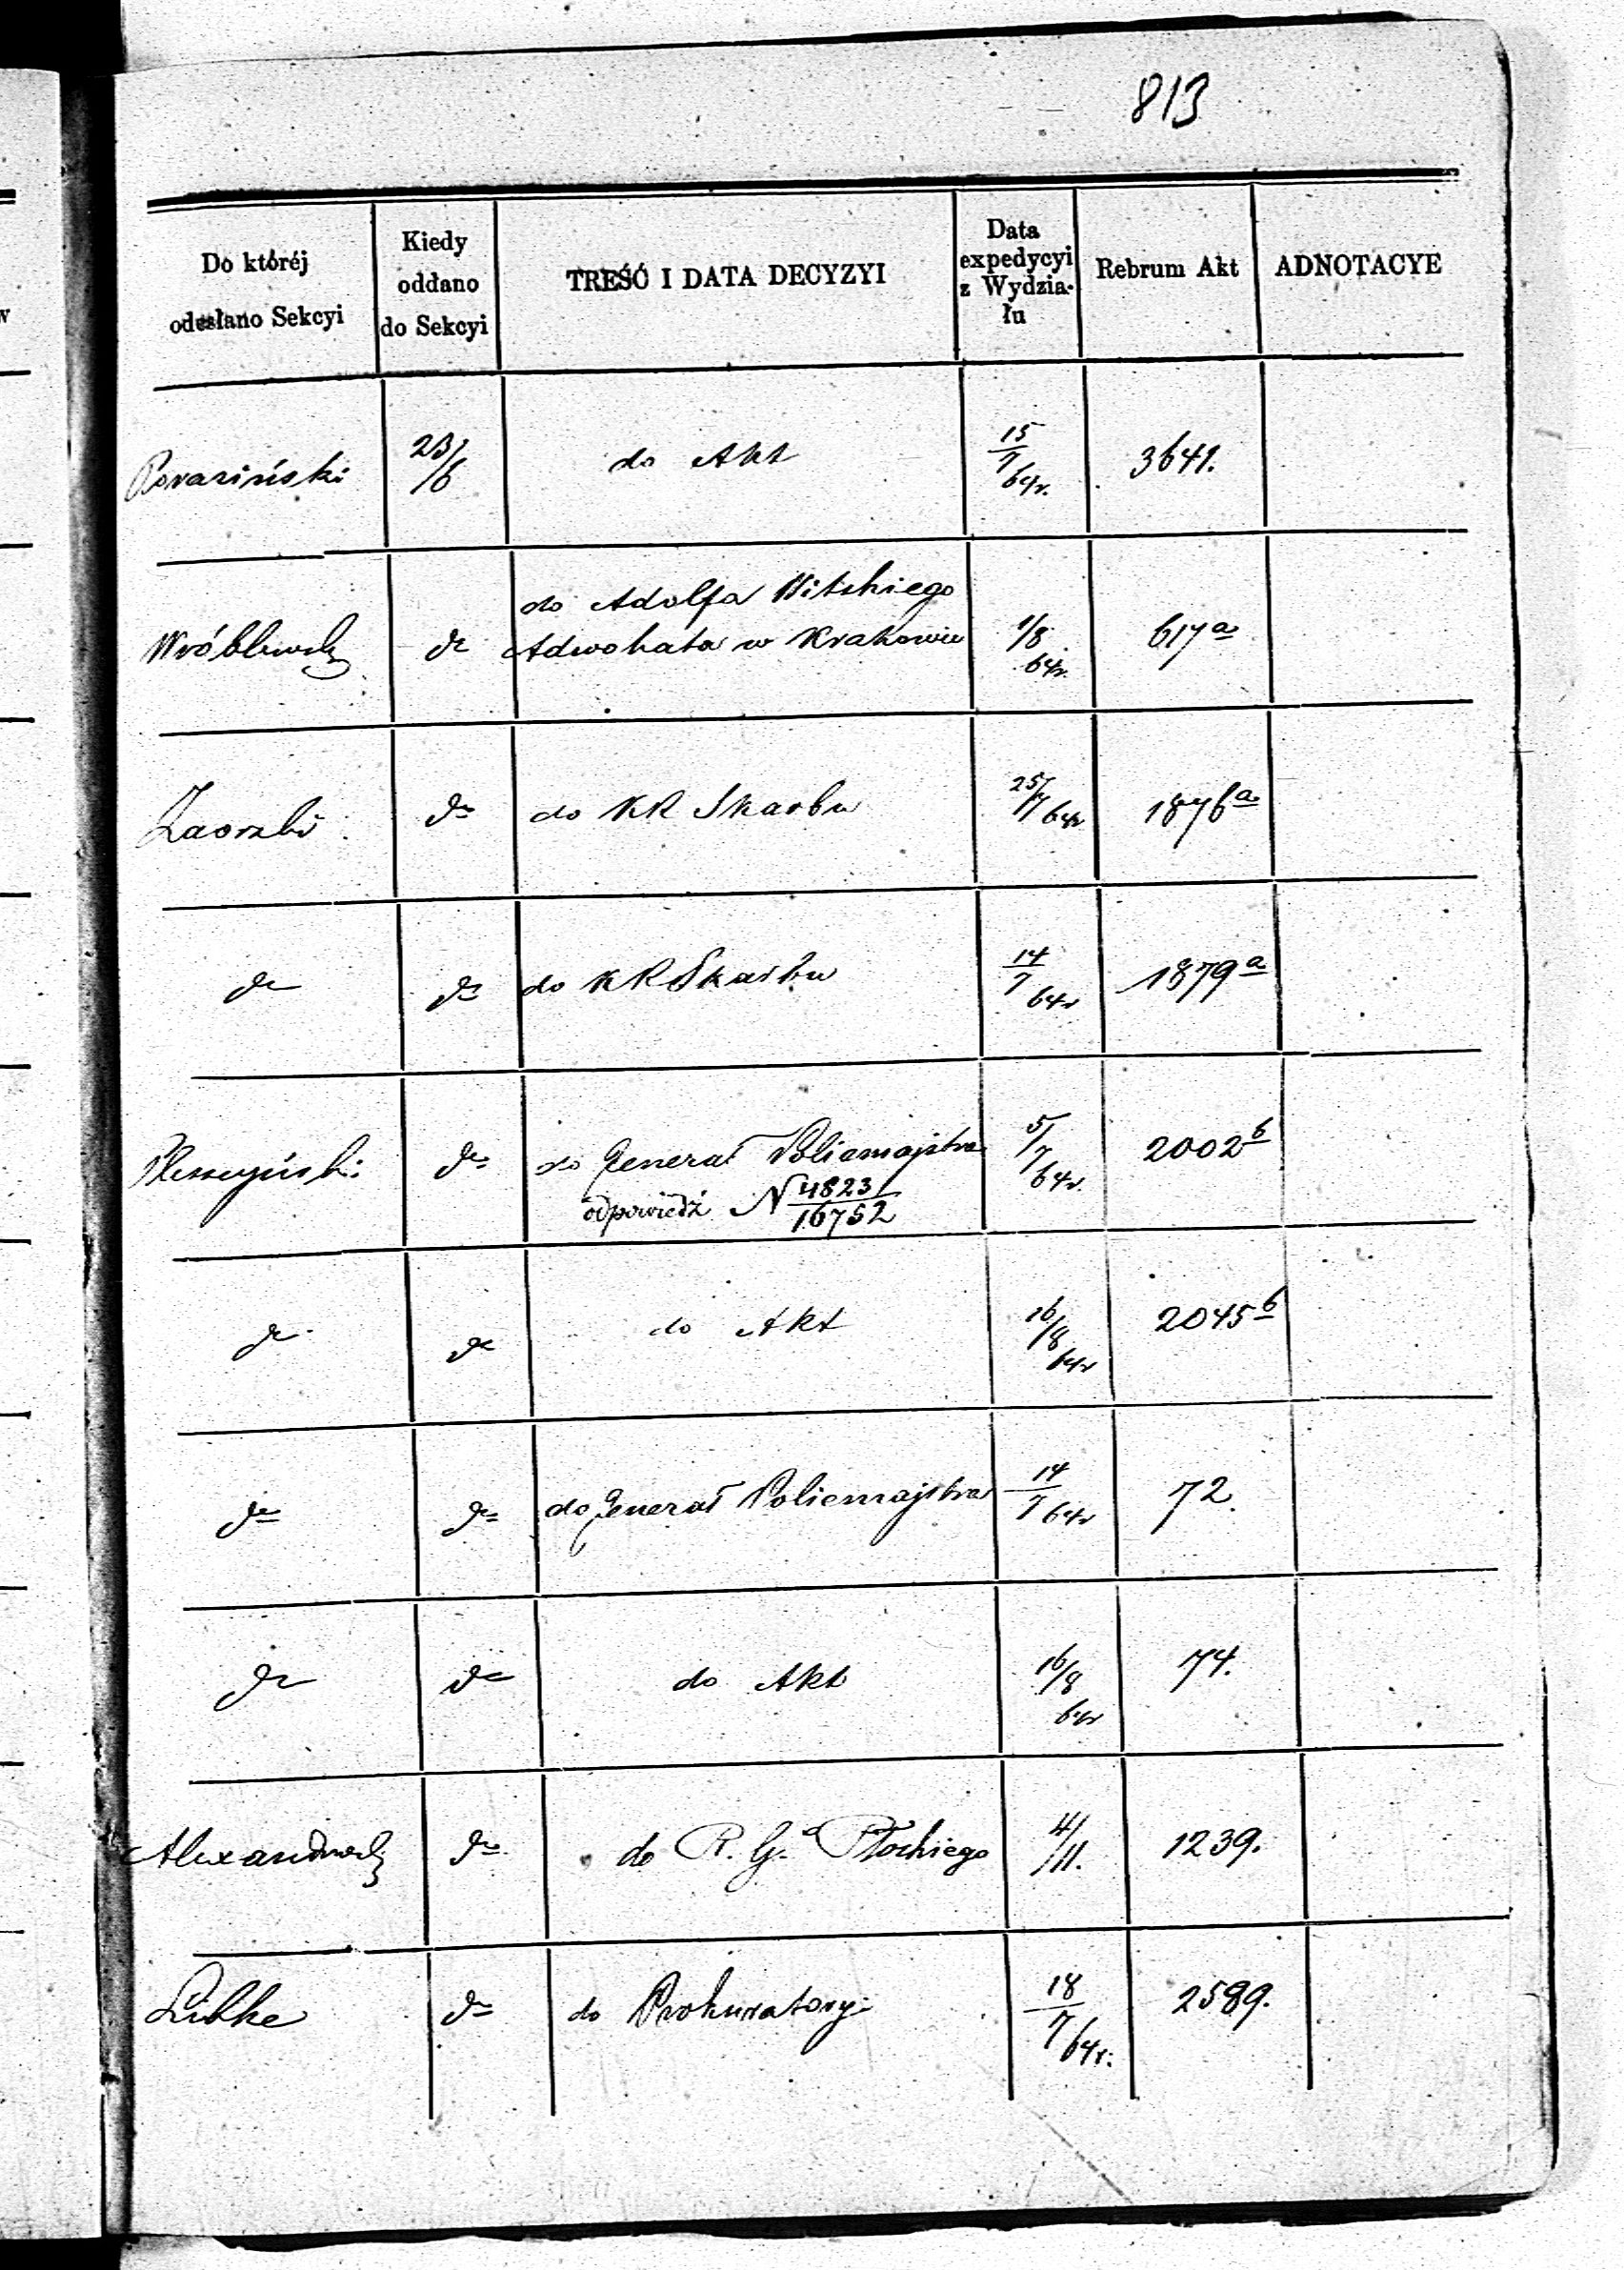 813
Do któréj
odesłano Sekcyi
Kiedy
oddano
do Sekcyi
TREŚĆ I DATA DECYZYI
Data
expedycyi
z Wydzia-
łu
Rebrum Akt
ADNOTACYE
23/6
do Akt
15/7 64r.
3641.
do Adolfa
Adwokata w Krakowie
1/8 64r.
617a
do KR Skarbu
25/7 64r
1876a
do KR Skarbu
14/7 64r
1879a
do Generał Policmajstra
odpowiedź N 4823/16752
5/7 64r.
2002b
do Akt
16/8 64r
2045b
do Generał Policmajstra
14/7 64r
72.
do Akt
16/8 64r
74.
do R. G. Płockiego
4/11.
1239.
do Prokuratoryi
18/7 64r.
2589.